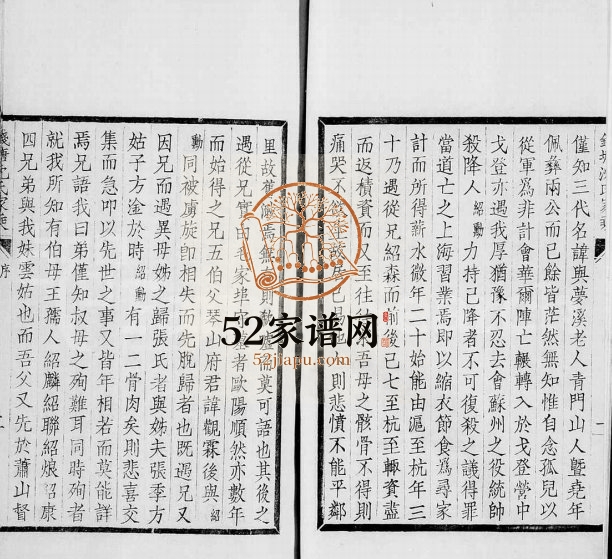 一
僅知三代名諱與夢溪老人青門山人曁堯年
佩彝兩公而已餘皆茫然無知惟自念孤兒以
從軍為非計會華爾陣亡輾轉入於戈登營中
戈登亦遇我厚猶豫不忍去會蘇州之役統帥
殺降人紹勳力持已降者不可復殺之議得罪
當道亡之上海習業焉即以縮衣節食為尋家
計而所得薪水微年二十始能由滬至杭年三
十乃遇從兄紹森而前後已七至杭至輒資盡
而返積資而又至往吾母之骸骨不得則
痛哭不故則悲憤不能平鄰
里故舊無則墟莫可語也其後之
遇從兄實毛家埠者歐陽順然亦數年
而始得之兄五伯父琴山府君諱觀霖後與紹
勳同被虜旋即相失而先脫歸者也既遇兄又
因兄而遇異母姊之歸張氏者與姊夫張季方
姑子方淦於時紹勳有一二骨肉矣則悲喜交
集而急叩以先世之事又皆年相若而莫能詳
焉兄語我曰弟僅知叔母之殉難耳同時殉者
就我所知有伯母王孺人紹麟紹聯紹烺紹康
四兄弟與我妹雲姑也而吾父又先於蕭山督
錢塘沈氏家乘 序 二
52家谱网
52jiapu.com